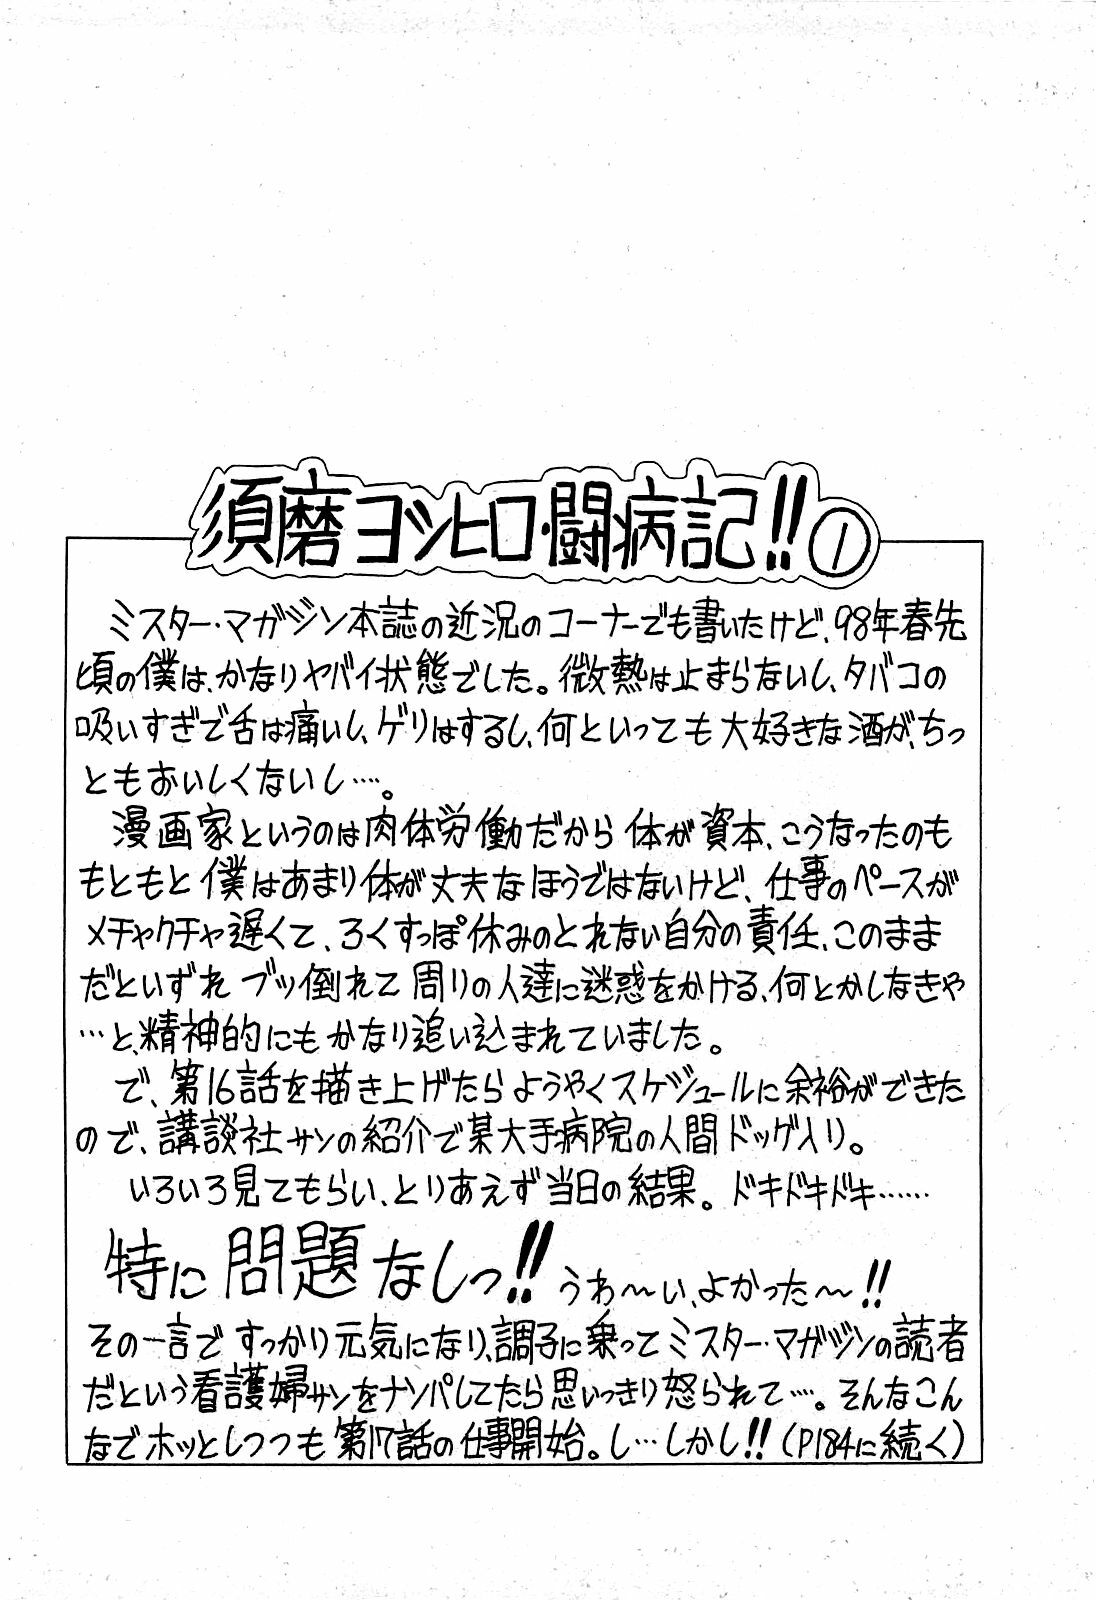 須磨ヨシヒロ・闘病記!!①
ミスター・マガジン本誌の近況のコーナーでも書いたけど、98年春先
頃の僕は、かなりヤバイ状態でした。微熱は止まらないし、タバコの
吸いすぎで舌は痛いし、ゲリはするし、何といっても大好きな酒が、ちっ
ともおいしくないし…。
漫画家というのは肉体労働だから体が資本、こうなったのも
もともと僕はあまり体が丈夫なほうではないけど、仕事のペースが
メチャクチャ遅くて、ろくすっぽ休みのとれない自分の責任、このまま
だといずれブッ倒れて周りの人達に迷惑をかける、何とかしなきゃ
…と、精神的にもかなり追い込まれていました。
で、第16話を描き上げたらようやくスケジュールに余裕ができた
ので、講談社サンの紹介で某大手病院の人間ドッグ入り。
いろいろ見てもらい、とりあえず当日の結果。ドキドキドキ……
特に問題なしっ!!うわ〜い、よかった〜!!
その一言ですっかり元気になり、調子に乗ってミスター・マガジンの読者
だという看護婦サンをナンパしてたら思いっきり怒られて…。そんなこん
なでホッとしつつも第17話の仕事開始。し…しかし!!(P184に続く)